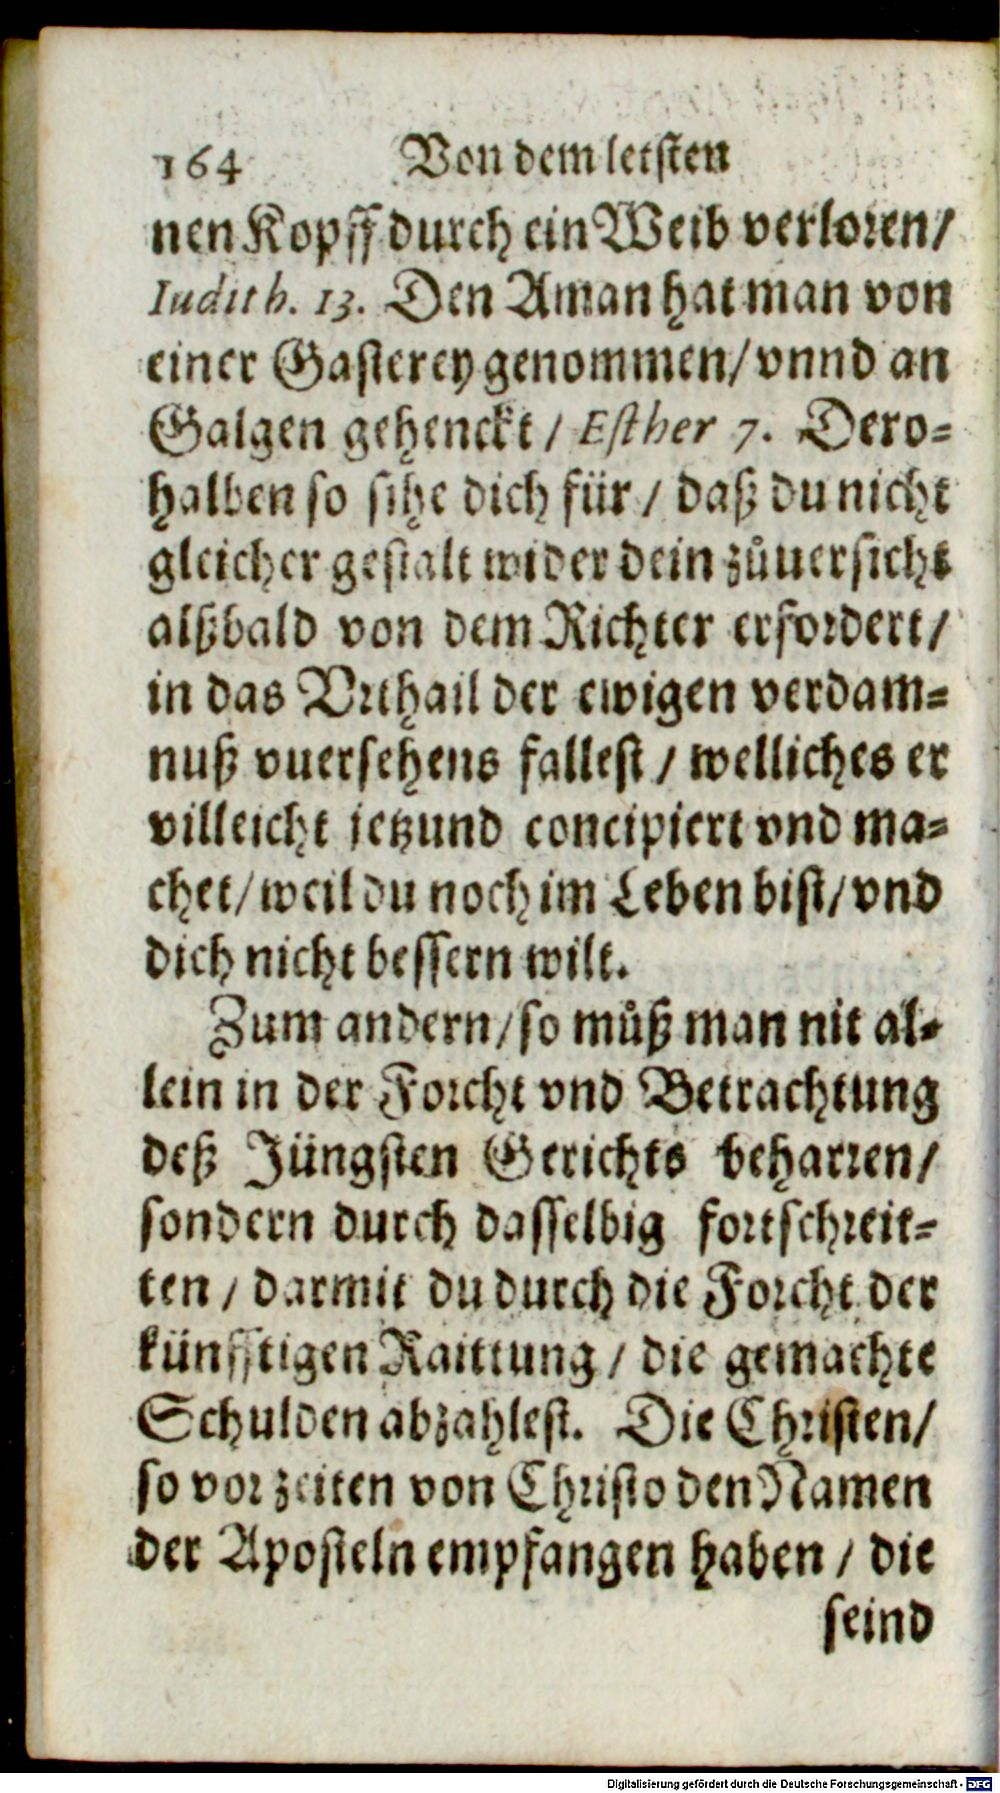 164 Von dem letsten
nen Kopff durch ein Weib verloren/
Iudith. 13. Den Aman hat man von
einer Gasterey genommen/ vnnd an
Galgen gehenckt / Esther 7. Dero=
halben so sihe dich für / daß du nicht
gleicher gestalt wider dein zůuersicht
alßbald von dem Richter erfordert/
in das Vrthail der ewigen verdam=
nuß vuersehens fallest / welliches er
villeicht jetzund concipiert vnd ma=
chet/ weil du noch im Leben bist/ vnd
dich nicht bessern wilt.
Zum andern/ so můß man nit al=
lein in der Forcht vnd Betrachtung
deß Jüngsten Gerichts beharren/
sondern durch dasselbig fortschreit=
ten / darmit du durch die Forcht der
künfftigen Raittung / die gemachte
Schulden abzahlest. Die Christen/
so vor zeiten von Christo den Namen
der Aposteln empfangen haben / die
seind
Digitalisierung gefördert durch die Deutsche Forschungsgemeinschaft - DFG